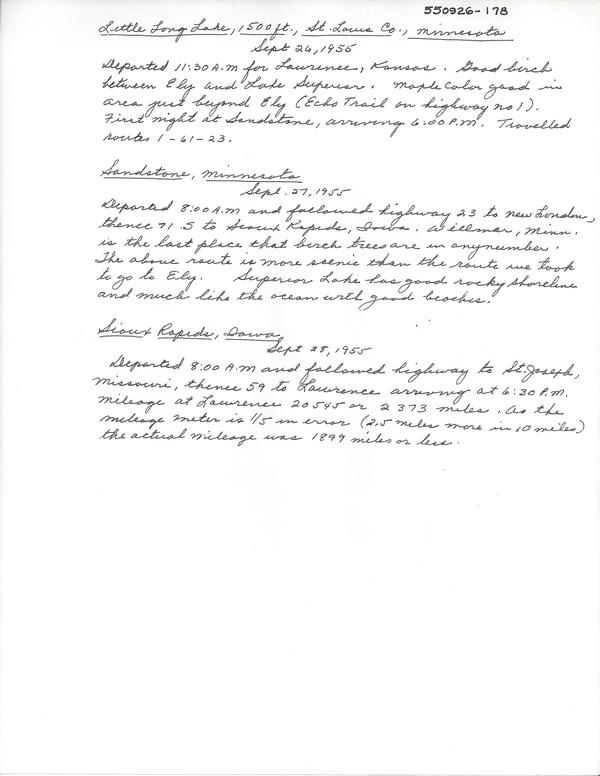 550926-178
Little Long Lake, 1500 ft., St. Louis Co., Minnesota
Sept 26, 1955
Departed 11:30 A.M for Lawrence, Kansas. Good birch
between Ely and Lake Superior. Maple color good in
area just beyond Ely (Echo Trail on highway no 1).
First night at Sandstone, arriving 6:00 P.M. Travelled
routes 1-61-23.
Sandstone, Minnesota
Sept. 27, 1955
Departed 8:00 A.M and followed highway 23 to new London,
thence 71 S to Sioux Rapids, Iowa. Willmar, Minn.
is the last place that birch trees are in any number.
The above route is more scenic than the route we took
to go to Ely. Superior Lake has good rocky shoreline
and much like the ocean with good beaches.
Sioux Rapids, Iowa
Sept 28, 1955
Departed 8:00 A.M and followed highway to St. Joseph,
Missouri, thence 59 to Lawrence arriving at 6:30 P.M.
Mileage at Lawrence 20545 or 2373 miles. As the
mileage meter is 1/5 in error (2.5 miles more in 10 miles)
the actual mileage was 1899 miles or less.